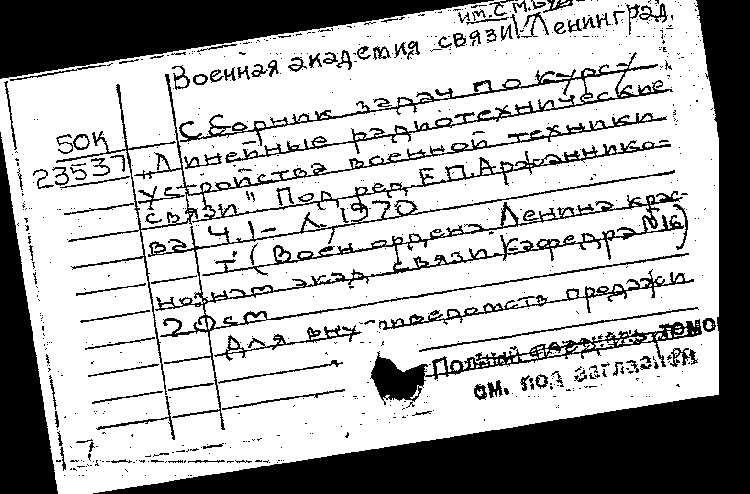 им. С. М. Буд
Военная академия связи, Ленинград.
Сборник задач по курсу
50К
„Линейные радиотехнические
23537
устройства военной техники
связи". Под ред. Е.П.Аржанико-
ва Ч.1- Л, 1970
(Воен. ордена Ленина крас-
нознам. акад. связи. Кафедра №16)
20см
Для внутриведомств продажи
Полный перечень томов
см. под заглавием